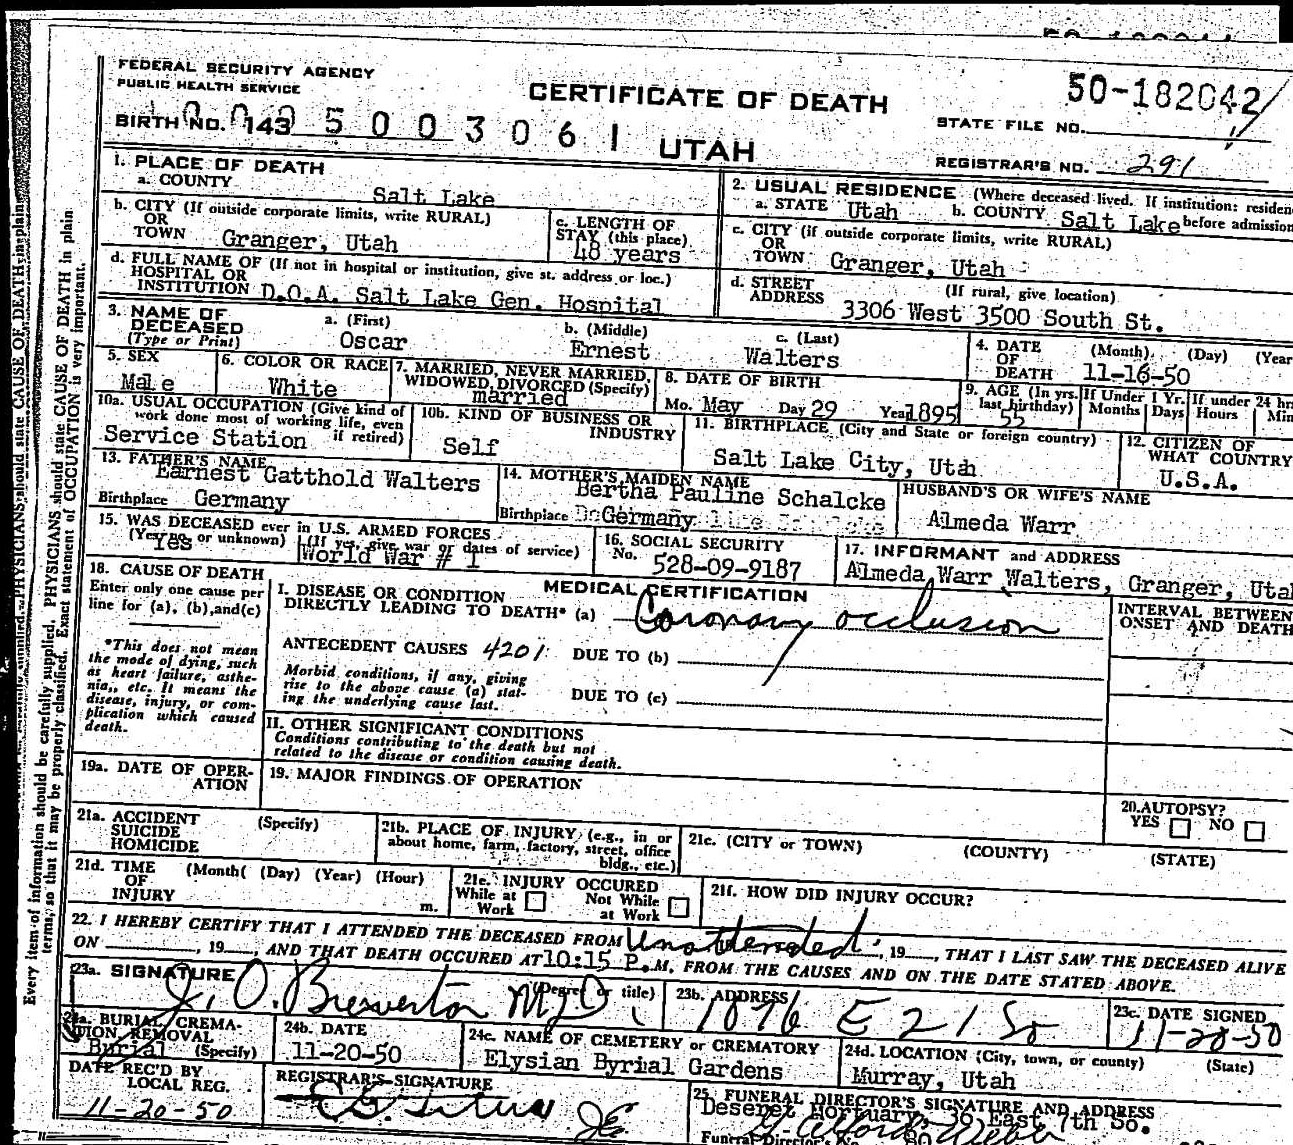 FEDERAL SECURITY AGENCY
PUBLIC HEALTH SERVICE
CERTIFICATE OF DEATH
50-182042
STATE FILE NO.
BIRTH NO. 143
5 0 0 3 0 6 1
UTAH
REGISTRAR'S NO. 291
1. PLACE OF DEATH
a. COUNTY
Salt Lake
2. USUAL RESIDENCE (Where deceased lived. If institution: residen
a. STATE Utah b. COUNTY Salt Lake before admission
b. CITY (If outside corporate limits, write RURAL)
OR
TOWN Granger, Utah
c. LENGTH OF
STAY (this place)
48 years
c. CITY (if outside corporate limits, write RURAL)
OR
TOWN Granger, Utah
d. FULL NAME OF (If not in hospital or institution, give st. address or loc.)
HOSPITAL OR
INSTITUTION D.O.A. Salt Lake Gen. Hospital
d. STREET (If rural, give location)
ADDRESS
3306 West 3500 South St.
3. NAME OF
DECEASED
(Type or Print)
a. (First)
Oscar
b. (Middle)
Ernest
c. (Last)
Walters
4. DATE (Month) (Day) (Year
OF
DEATH 11-16-50
5. SEX
Male
6. COLOR OR RACE
White
7. MARRIED, NEVER MARRIED,
WIDOWED, DIVORCED (Specify)
married
8. DATE OF BIRTH
Mo. May Day 29 Year 1895
9. AGE (In yrs.
last birthday)
55
If Under 1 Yr.
Months Days
If under 24 hr
Hours Min
10a. USUAL OCCUPATION (Give kind of
work done most of working life, even
if retired)
Service Station
10b. KIND OF BUSINESS OR
INDUSTRY
Self
11. BIRTHPLACE (City and State or foreign country)
Salt Lake City, Utah
12. CITIZEN OF
WHAT COUNTRY
U.S.A.
13. FATHER'S NAME
Earnest Gatthold Walters
Birthplace Germany
14. MOTHER'S MAIDEN NAME
Bertha Pauline Schalcke
Birthplace Germany
HUSBAND'S OR WIFE'S NAME
Almeda Warr
15. WAS DECEASED ever in U.S. ARMED FORCES
(Yes, no, or unknown) (If yes, give war or dates of service)
Yes World War # 1
16. SOCIAL SECURITY
No. 528-09-9187
17. INFORMANT and ADDRESS
Almeda Warr Walters, Granger, Utah
18. CAUSE OF DEATH
Enter only one cause per
line for (a), (b), and (c)
*This does not mean
the mode of dying, such
as heart failure, asthe-
nia,, etc. It means the
disease, injury, or com-
plication which caused
death.
MEDICAL CERTIFICATION
I. DISEASE OR CONDITION
DIRECTLY LEADING TO DEATH* (a) Coronary occlusion
INTERVAL BETWEEN
ONSET AND DEATH
ANTECEDENT CAUSES 4201 DUE TO (b)
Morbid conditions, if any, giving
rise to the above cause (a) stat-
ing the underlying cause last.
DUE TO (c)
II. OTHER SIGNIFICANT CONDITIONS
Conditions contributing to the death but not
related to the disease or condition causing death.
19a. DATE OF OPER-
ATION
19. MAJOR FINDINGS OF OPERATION
20. AUTOPSY?
YES NO
21a. ACCIDENT (Specify)
SUICIDE
HOMICIDE
21b. PLACE OF INJURY (e.g., in or
about home, farm, factory, street, office
bldg., etc.)
21c. (CITY or TOWN) (COUNTY) (STATE)
21d. TIME (Month( (Day) (Year) (Hour)
OF
INJURY m.
21e. INJURY OCCURED
While at Work Not While at Work
21f. HOW DID INJURY OCCUR?
22. I HEREBY CERTIFY THAT I ATTENDED THE DECEASED FROM Unattended, 19__, THAT I LAST SAW THE DECEASED ALIVE
ON ______, 19__, AND THAT DEATH OCCURED AT 10:15 P.M. FROM THE CAUSES AND ON THE DATE STATED ABOVE.
23a. SIGNATURE (Degree or title)
J. O. Brewerton M.D.
23b. ADDRESS
1876 E 21 So
23c. DATE SIGNED
11-20-50
24a. BURIAL, CREMA-
TION, REMOVAL
(Specify)
Burial
24b. DATE
11-20-50
24c. NAME OF CEMETERY or CREMATORY
Elysian Byrial Gardens
24d. LOCATION (City, town, or county) (State)
Murray, Utah
DATE REC'D BY
LOCAL REG.
11-20-50
REGISTRAR'S SIGNATURE
25. FUNERAL DIRECTOR'S SIGNATURE AND ADDRESS
Deseret Mortuary, 39 East 7th So.
Funeral Director's No.
Every item of information should be carefully supplied. PHYSICIANS should state CAUSE OF DEATH in plain
terms, so that it may be properly classified. Exact statement of OCCUPATION is very important.